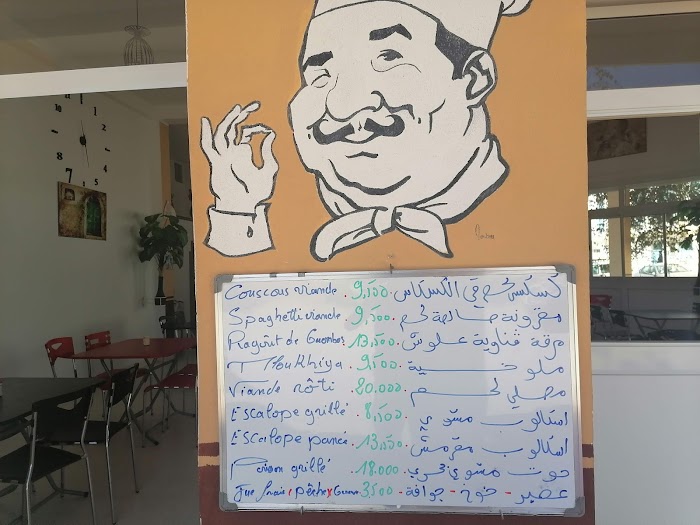 Couscous viande . 9,500 . كسكسي لحم في الكسكاس
Spaghetti viande . 9,500 . مقرونة صالحة لحم
Ragout de Guombos . 13,500 . مرقة قناوية علوش
Moukhiya . 9,500 . ملوخية
Viande rôti . 20.000 . مصلي لحم
Escalope grillé . 8,500 . اسكالوب مشوي
Escalope pané . 13,500 . اسكالوب مقرمش
Poisson grillé . 18.000 . حوت مشوي بحري
Jus frais ( pêche) Guava 3,500 - عصير - خوخ - جوافة